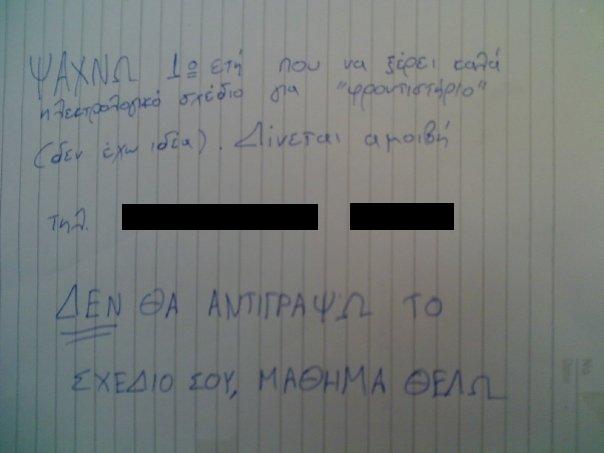 ΨΑΧΝΩ 1ο ετή που να ξέρει καλά
ηλεκτρολογικό σχέδιο για "φροντιστήριο"
(δεν έχω ιδέα). Δίνεται αμοιβή
τηλ.
ΔΕΝ ΘΑ ΑΝΤΙΓΡΑΨΩ ΤΟ
ΣΧΕΔΙΟ ΣΟΥ, ΜΑΘΗΜΑ ΘΕΛΩ